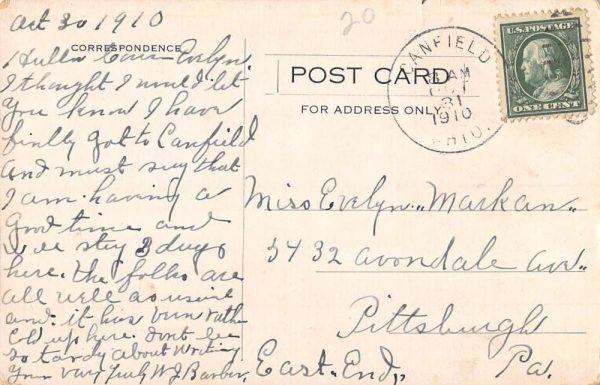 Oct 30 1910
20
Hullo Cous Evelyn.
CORRESPONDENCE
I thought I would let
You know I have
finlly got to Canfield
and must say that
I am having a
good time and
will stay 3 days
here. the folks are
all well as usual
and it has bin rathe
Cold up here. dont be
so tardy about Writing
Your very Truly W J Barber.
POST CARD
FOR ADDRESS ONLY
CANFIELD
AM
OCT
31
1910
OHIO.
U.S. POSTAGE
ONE CENT
Miss Evelyn Markan
5432 avondale ave
Pittsburgh
East End, Pa.